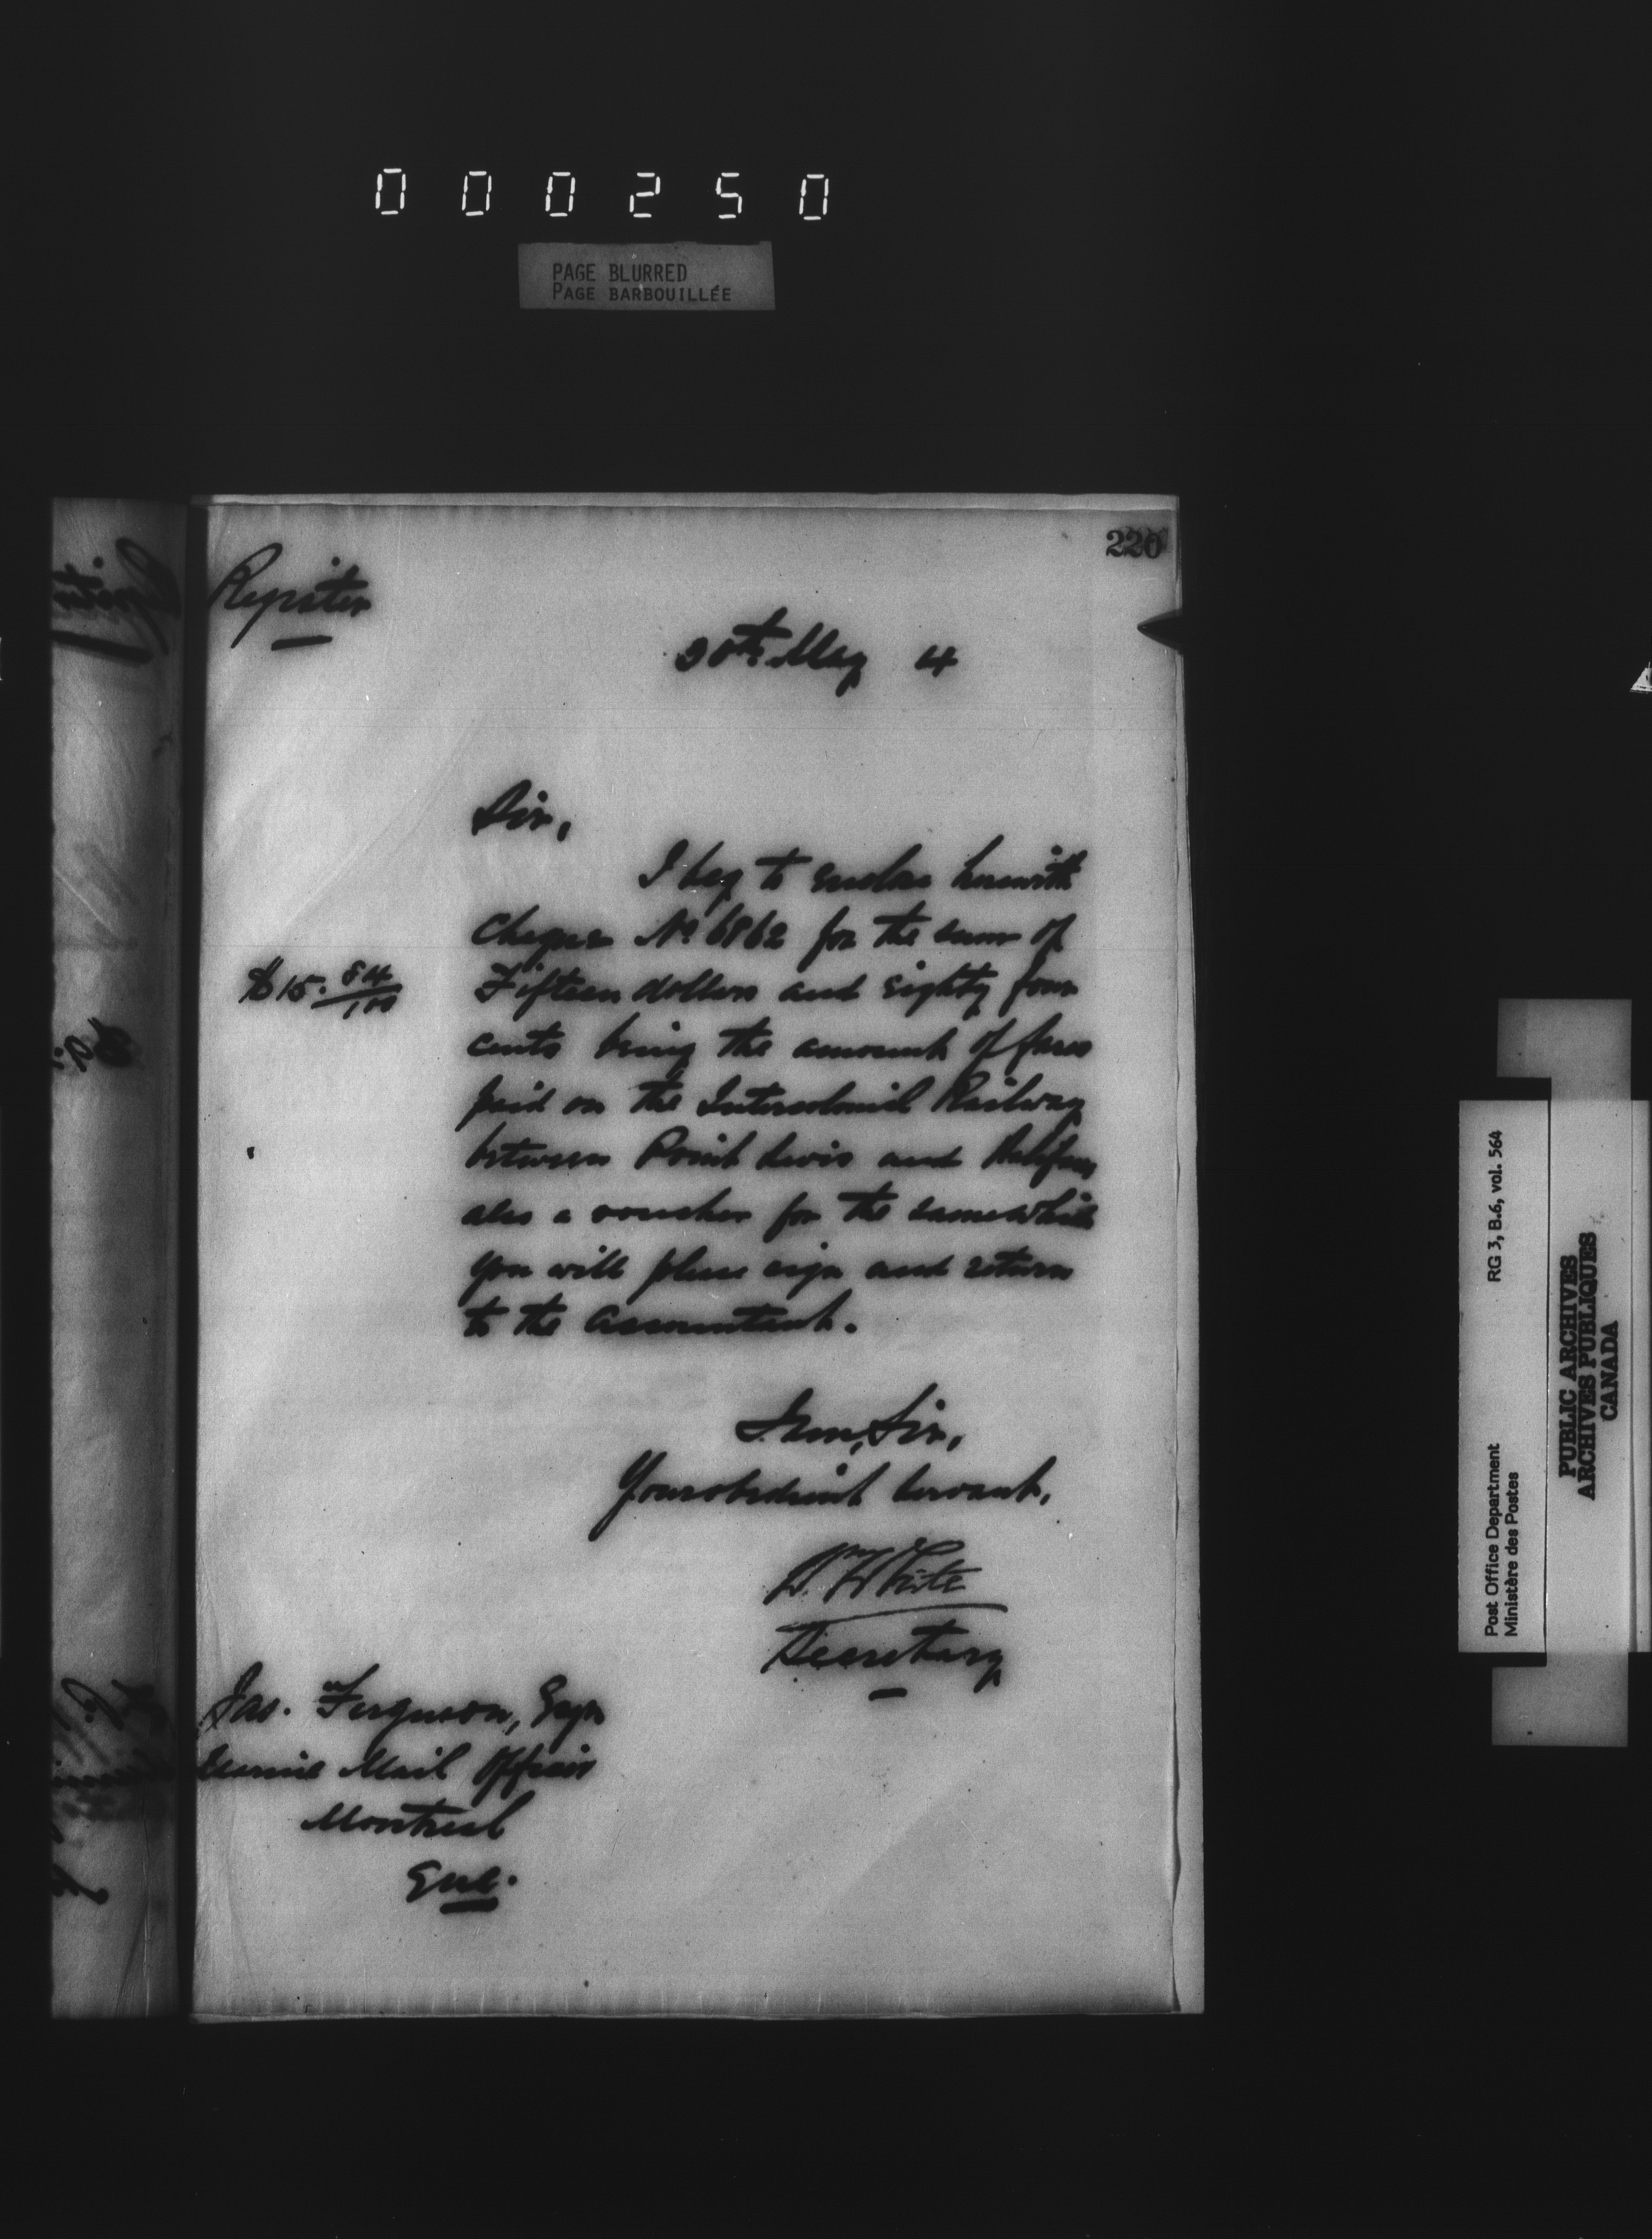 000250
PAGE BLURRED
PAGE BARBOUILLÉE
220
Register
20th May 4
Sir,
I beg to enclose herewith
cheque No 6862 for the sum of
$15. 84/100
Fifteen dollars and eighty four
cents being the amount of fares
paid on the Intercolonial Railway
between Point Levis and Halifax
also a voucher for the same which
you will please sign and return
to the Accountant.
I am, Sir,
Your obedient servant,
Wm White
Secretary
Jas. Ferguson, Esqr
Marine Mail Officer
Montreal
Que.
RG 3, B.6, vol. 564
Post Office Department
Ministère des Postes
PUBLIC ARCHIVES
ARCHIVES PUBLIQUES
CANADA